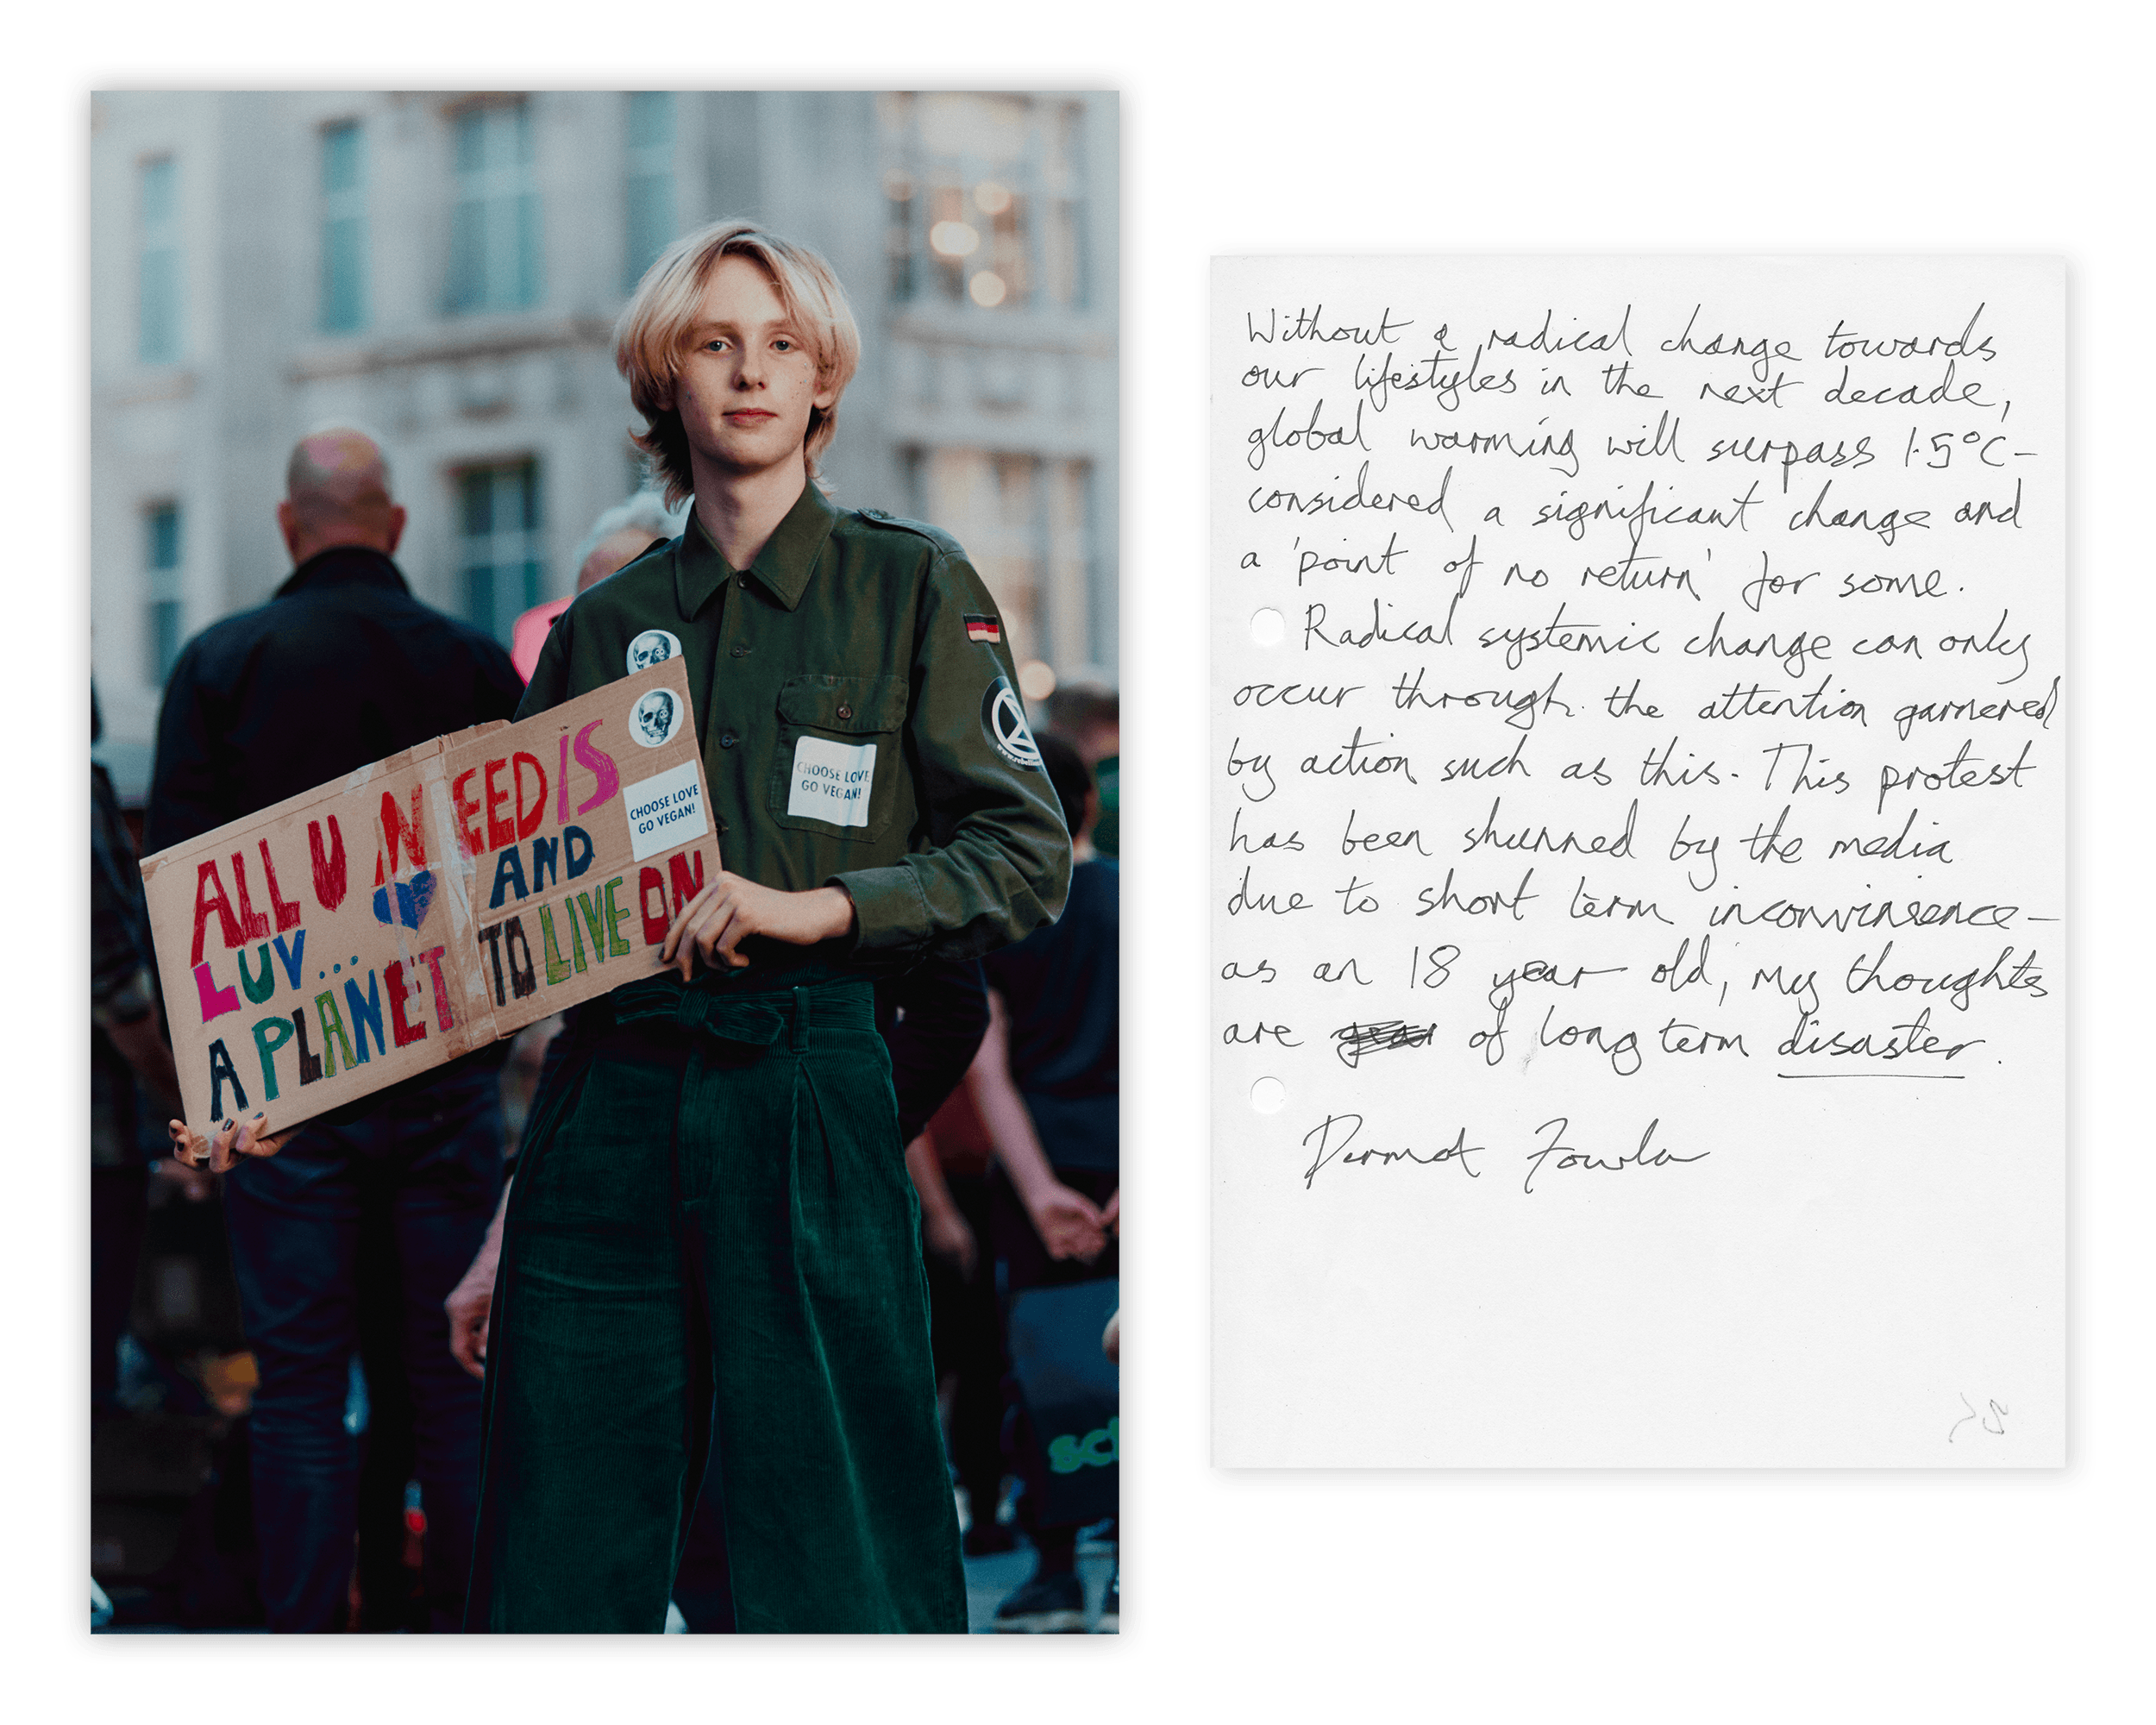 ALL U NEED IS
LUV... AND
A PLANET TO LIVE ON
CHOOSE LOVE
GO VEGAN!
CHOOSE LOVE
GO VEGAN!
Without a radical change towards
our lifestyles in the next decade,
global warming will surpass 1.5°C –
considered a significant change and
a 'point of no return' for some.
Radical systemic change can only
occur through the attention garnered
by action such as this. This protest
has been shunned by the media
due to short term inconvinience –
as an 18 year old, my thoughts
are of long term disaster.
Dermot Fowler